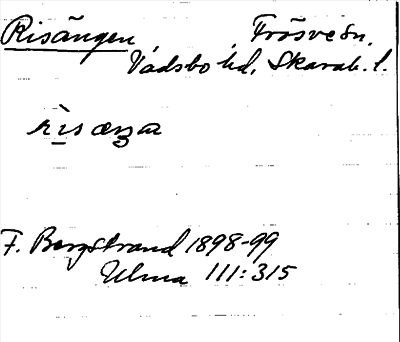 Risängen Frösve sn.
Vadsbo hd, Skarab. l.
rìsæŋa
F. Bergstrand 1898-99
Ulma 111:315